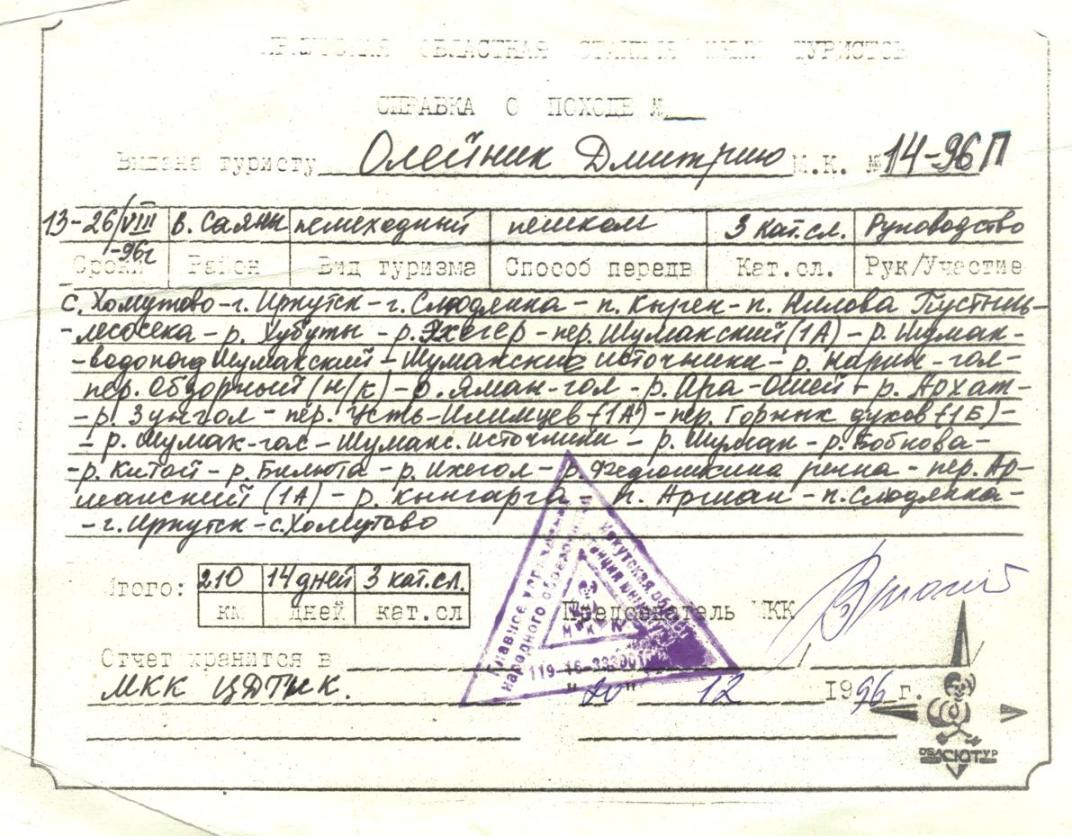 ИРКУТСКАЯ ОБЛАСТНАЯ СТАНЦИЯ ЮНЫХ ТУРИСТОВ
СПРАВКА О ПОХОДЕ №
Выдана туристу Олейник Дмитрию М.К. № 14-96П
13-26/VIII -96г В. Саяны пешеходный пешком 3 кат.сл. Руководство
Сроки Район Вид туризма Способ передв Кат.сл. Рук/Участие
с. Хомутово - г. Иркутск - г. Слюдянка - п. Кырен - п. Нилова Пустынь -
- лесосека - р. Хубуты - р. Эхегер - пер. Шумакский (1А) - р. Шумак -
- водопад Шумакский - Шумакские источники - р. Нарин-гол -
пер. Обзорный (н/к) - р. Яман-гол - р. Ара-Ошей - р. Архат -
- р. Зунгол - пер. Усть-Илимцев (1А) - пер. Горных духов (1Б) -
- р. Шумак-гол - Шумакс. источники - р. Шумак - р. Бобкова -
- р. Китой - р. Билюта - р. Ихегол - р. Федюшкина речка - пер. Ар-
шанский (1А) - р. Кынгарга - п. Аршан - п. Слюдянка -
- г. Иркутск - с. Хомутово
Итого: 210 14 дней 3 кат.сл.
км дней кат.сл
Председатель МКК
Главное управление народного образования
Иркутская областная станция юных
МКК
Отчет хранится в
МКК ЦДТиК.
"20" 12 1996 г.
ОБЛСЮТУР